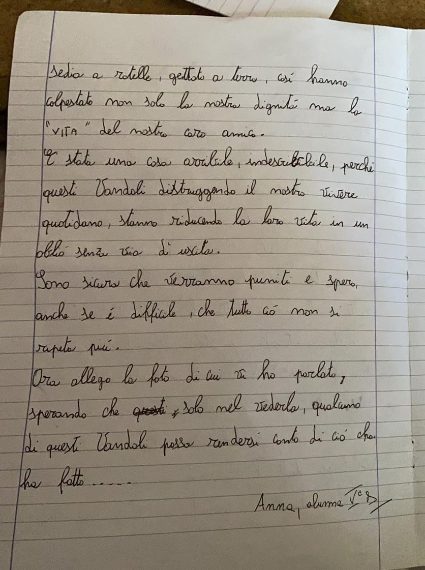 sedia a rotelle, gettato a terra, così hanno
calpestato non solo la nostra dignità ma la
"VITA" del nostro caro amico.
È stata una cosa orribile, indescribile, perché
questi Vandali distruggendo il nostro vivere
quotidano, stanno riducendo la loro vita in un
oblio senza via di uscita.
Sono sicura che verranno puniti e spero,
anche se é difficile, che tutto ció non si
ripeta piú.
Ora allego la foto di cui vi ho parlato,
sperando che , solo nel vederla, qualcuno
di questi Vandali possa rendersi conto di ció che
ha fatto.....
Anna, alunna Vª